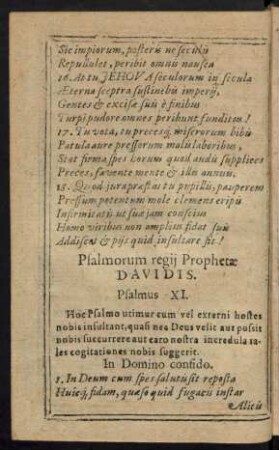 Sic impiorum, posteris ne seculis
Repullulet, peribit omnis nausea
16. At tu JEHOVA seculorum in secula
Æterna sceptra sustinebis imperij,
Gentes & excisæ suis è finibus
Turpi pudore omnes peribunt funditem!
17. Tu vota, tu preces misererum bibis
Patula aure pressorum malis laboribus,
Stat firma spes horum quod audis supplices
Preces, favente mente & illis annuis.
18. Quod jura præstas tu pupillis, pauperem
Pressum potentum mole clemens eripis
Infirmitatis ut suæ jam conscius
Homo viribus non amplius fidat suis
Addiscat & pijs quid insultare sit!
Psalmorum regij Prophetæ
DAVIDIS.
Psalmus XI.
Hoc Psalmo utimur cum vel externi hostes
nobis insultant, quasi nec Deus velit aut possit
nobis succurrere aut caro nostra incredula ta-
les cogitationes nobis suggerit.
In Domino confido.
1. In Deum cum spes salutis sit reposta
Huicq, fidam, quæso quid fugacis instar
Alitis